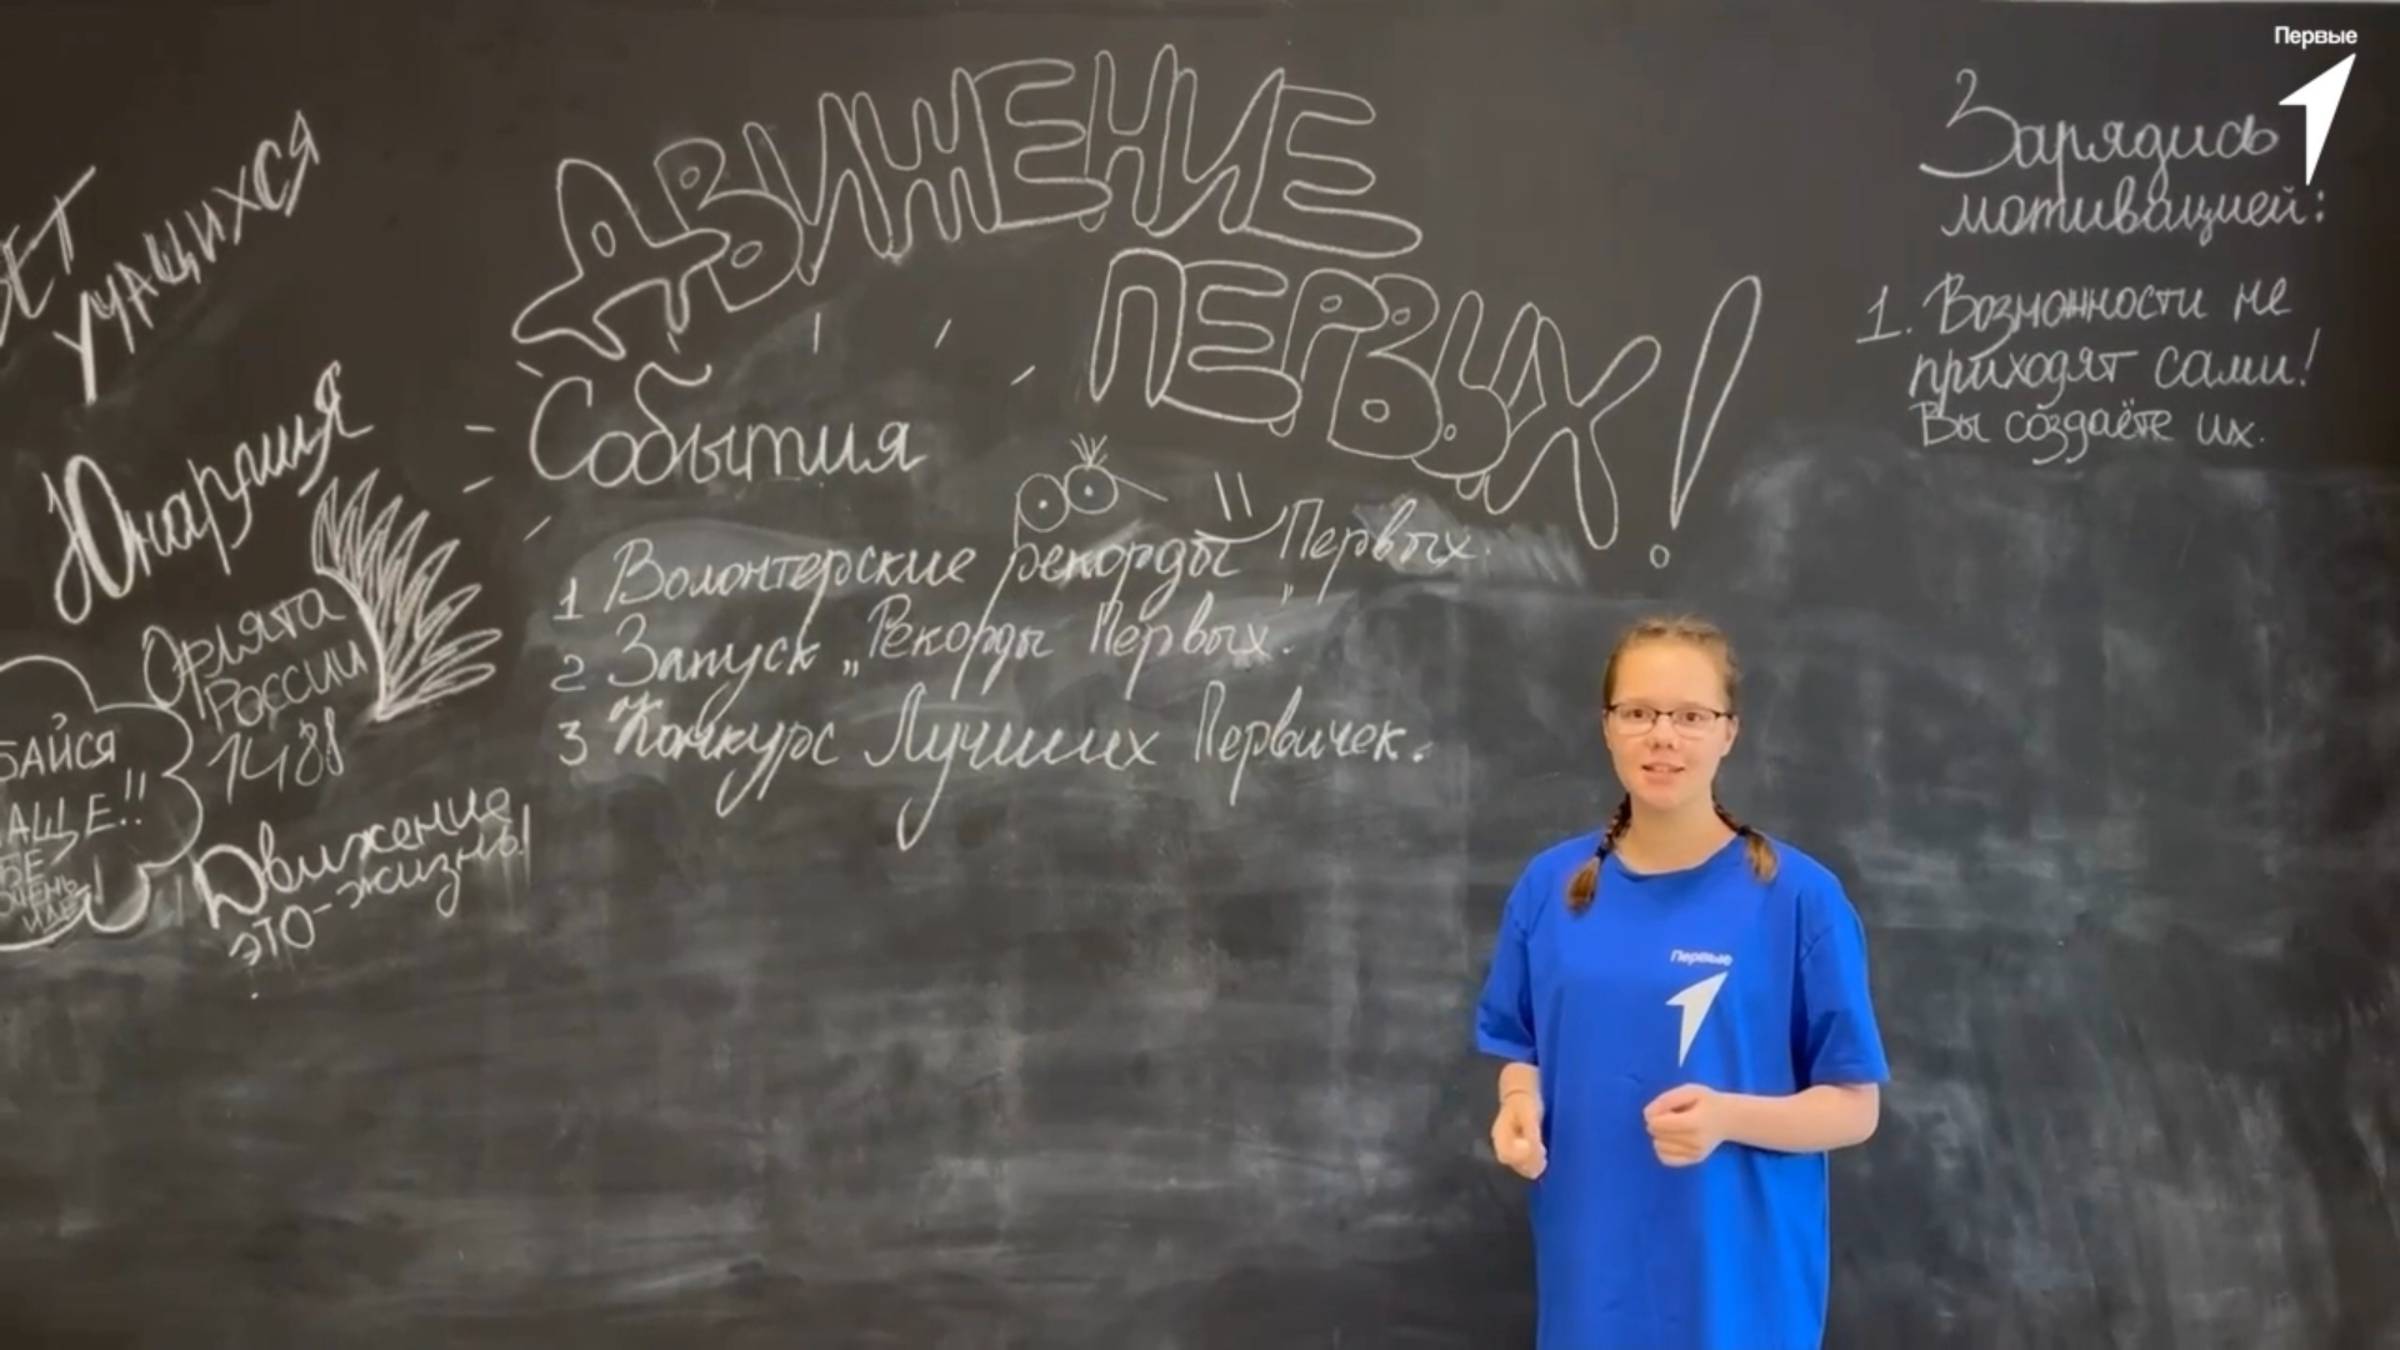 Первые
ДВИЖЕНИЕ
ПЕРВЫХ!
Зарядись
мотивацией:
1. Возможности не
приходят сами!
Вы создаёте их.
УЧАЩИХСЯ
Юнармия
Орлята
РОССИИ
1488
Движение
это-жизнь!
События
1 Волонтерские рекорды Первых.
2 Запуск „Рекорды Первых".
3 Конкурс Лучших Первичек.
Первые